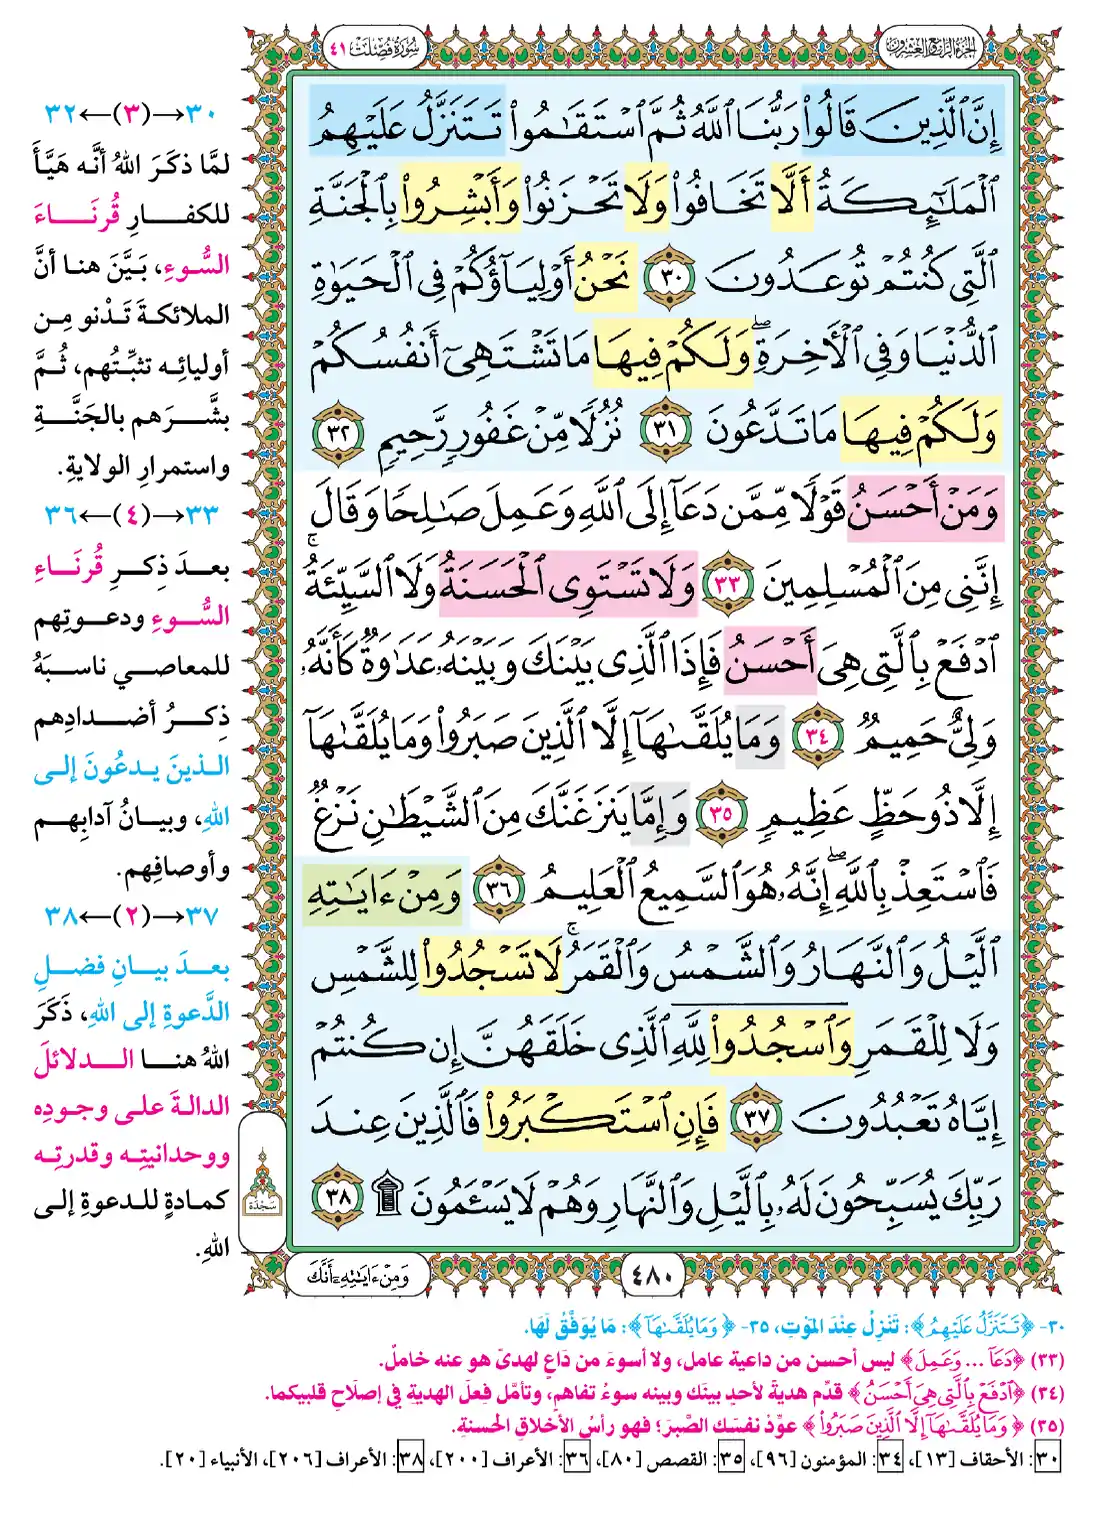 الجزء الرابع والعشرون
سورة فصلت ٤١
إِنَّ ٱلَّذِينَ قَالُوا۟ رَبُّنَا ٱللَّهُ ثُمَّ ٱسْتَقَـٰمُوا۟ تَتَنَزَّلُ عَلَيْهِمُ
ٱلْمَلَـٰٓئِكَةُ أَلَّا تَخَافُوا۟ وَلَا تَحْزَنُوا۟ وَأَبْشِرُوا۟ بِٱلْجَنَّةِ
ٱلَّتِى كُنتُمْ تُوعَدُونَ ٣٠ نَحْنُ أَوْلِيَآؤُكُمْ فِى ٱلْحَيَوٰةِ
ٱلدُّنْيَا وَفِى ٱلْأَخِرَةِ ۖ وَلَكُمْ فِيهَا مَا تَشْتَهِىٓ أَنفُسُكُمْ
وَلَكُمْ فِيهَا مَا تَدَّعُونَ ٣١ نُزُلًا مِّنْ غَفُورٍ رَّحِيمٍ ٣٢
وَمَنْ أَحْسَنُ قَوْلًا مِّمَّن دَعَآ إِلَى ٱللَّهِ وَعَمِلَ صَـٰلِحًا وَقَالَ
إِنَّنِى مِنَ ٱلْمُسْلِمِينَ ٣٣ وَلَا تَسْتَوِى ٱلْحَسَنَةُ وَلَا ٱلسَّيِّئَةُ ۚ
ٱدْفَعْ بِٱلَّتِى هِىَ أَحْسَنُ فَإِذَا ٱلَّذِى بَيْنَكَ وَبَيْنَهُۥ عَدَٰوَةٌ كَأَنَّهُۥ
وَلِىٌّ حَمِيمٌ ٣٤ وَمَا يُلَقَّىٰهَآ إِلَّا ٱلَّذِينَ صَبَرُوا۟ وَمَا يُلَقَّىٰهَآ
إِلَّا ذُو حَظٍّ عَظِيمٍ ٣٥ وَإِمَّا يَنزَغَنَّكَ مِنَ ٱلشَّيْطَـٰنِ نَزْغٌ
فَٱسْتَعِذْ بِٱللَّهِ ۖ إِنَّهُۥ هُوَ ٱلسَّمِيعُ ٱلْعَلِيمُ ٣٦ وَمِنْ ءَايَـٰتِهِ
ٱلَّيْلُ وَٱلنَّهَارُ وَٱلشَّمْسُ وَٱلْقَمَرُ ۚ لَا تَسْجُدُوا۟ لِلشَّمْسِ
وَلَا لِلْقَمَرِ وَٱسْجُدُوا۟ لِلَّهِ ٱلَّذِى خَلَقَهُنَّ إِن كُنتُمْ
إِيَّاهُ تَعْبُدُونَ ٣٧ فَإِنِ ٱسْتَكْبَرُوا۟ فَٱلَّذِينَ عِندَ
رَبِّكَ يُسَبِّحُونَ لَهُۥ بِٱلَّيْلِ وَٱلنَّهَارِ وَهُمْ لَا يَسْـَٔمُونَ ۩ ٣٨
سجدة
٤٨٠
وَمِنْ ءَايَـٰتِهِۦٓ أَنَّكَ
٣٠→(٣)←٣٢
لمَّا ذكَرَ اللهُ أنَّه هَيَّأَ
للكفارِ قُرنَاءَ
السُّوءِ، بَيَّنَ هنا أنَّ
الملائكةَ تَدْنو مِن
أوليائِه تثبِّتُهم، ثُمَّ
بشَّرَهم بالجَنَّةِ
واستمرارِ الولايةِ.
٣٣→(٤)←٣٦
بعدَ ذِكرِ قُرنَاءِ
السُّوءِ ودعوتِهم
للمعاصي ناسبَهُ
ذِكرُ أضدادِهم
الذينَ يدعُونَ إلى
اللهِ، وبيانُ آدابِهم
وأوصافِهم.
٣٧→(٢)←٣٨
بعدَ بيانِ فضلِ
الدَّعوةِ إلى اللهِ، ذَكَرَ
اللهُ هنا الدلائلَ
الدالةَ على وجودِه
ووحدانيتِه وقدرتِه
كمادةٍ للدعوةِ إلى
اللهِ.
٣٠- ﴿تَتَنَزَّلُ عَلَيْهِمُ﴾: تَنْزِلُ عِنْدَ المَوْتِ، ٣٥- ﴿وَمَا يُلَقَّىٰهَآ﴾: مَا يُوَفَّقُ لَهَا.
(٣٣) ﴿دَعَآ ... وَعَمِلَ﴾ ليس أحسن من داعية عامل، ولا أسوءَ من دَاعٍ لهدىً هو عنه خاملٌ.
(٣٤) ﴿ٱدْفَعْ بِٱلَّتِى هِىَ أَحْسَنُ﴾ قدِّم هديةً لأحدٍ بينَك وبينه سوءُ تفاهمٍ، وتأمَّل فِعلَ الهديةِ في إصلاحِ قلبيكما.
(٣٥) ﴿وَمَا يُلَقَّىٰهَآ إِلَّا ٱلَّذِينَ صَبَرُوا۟﴾ عوِّدْ نفسَك الصَّبرَ؛ فهو رأسُ الأخلاقِ الحسنةِ.
٣٠: الأحقاف [١٣]، ٣٤: المؤمنون [٩٦]، ٣٥: القصص [٨٠]، ٣٦: الأعراف [٢٠٠]، ٣٨: الأعراف [٢٠٦]، الأنبياء [٢٠].